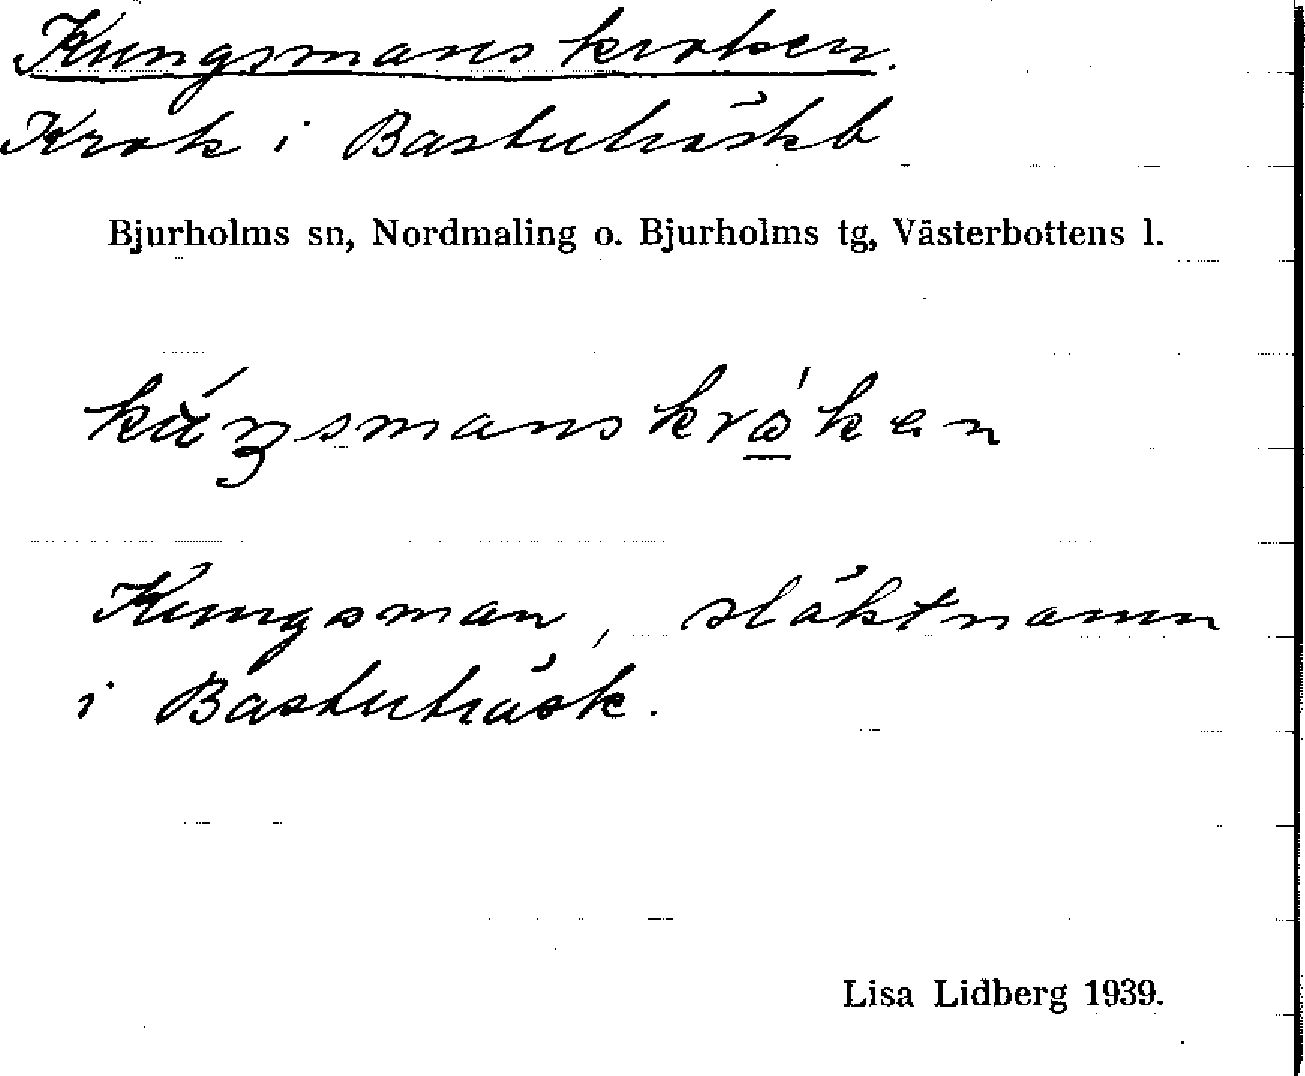 Kungsmanskroken.
Krok i Bastuträskb
Bjurholms sn, Nordmaling o. Bjurholms tg, Västerbottens l.
Kungsman, släktnamn
i Bastuträsk.
Lisa Lidberg 1939.